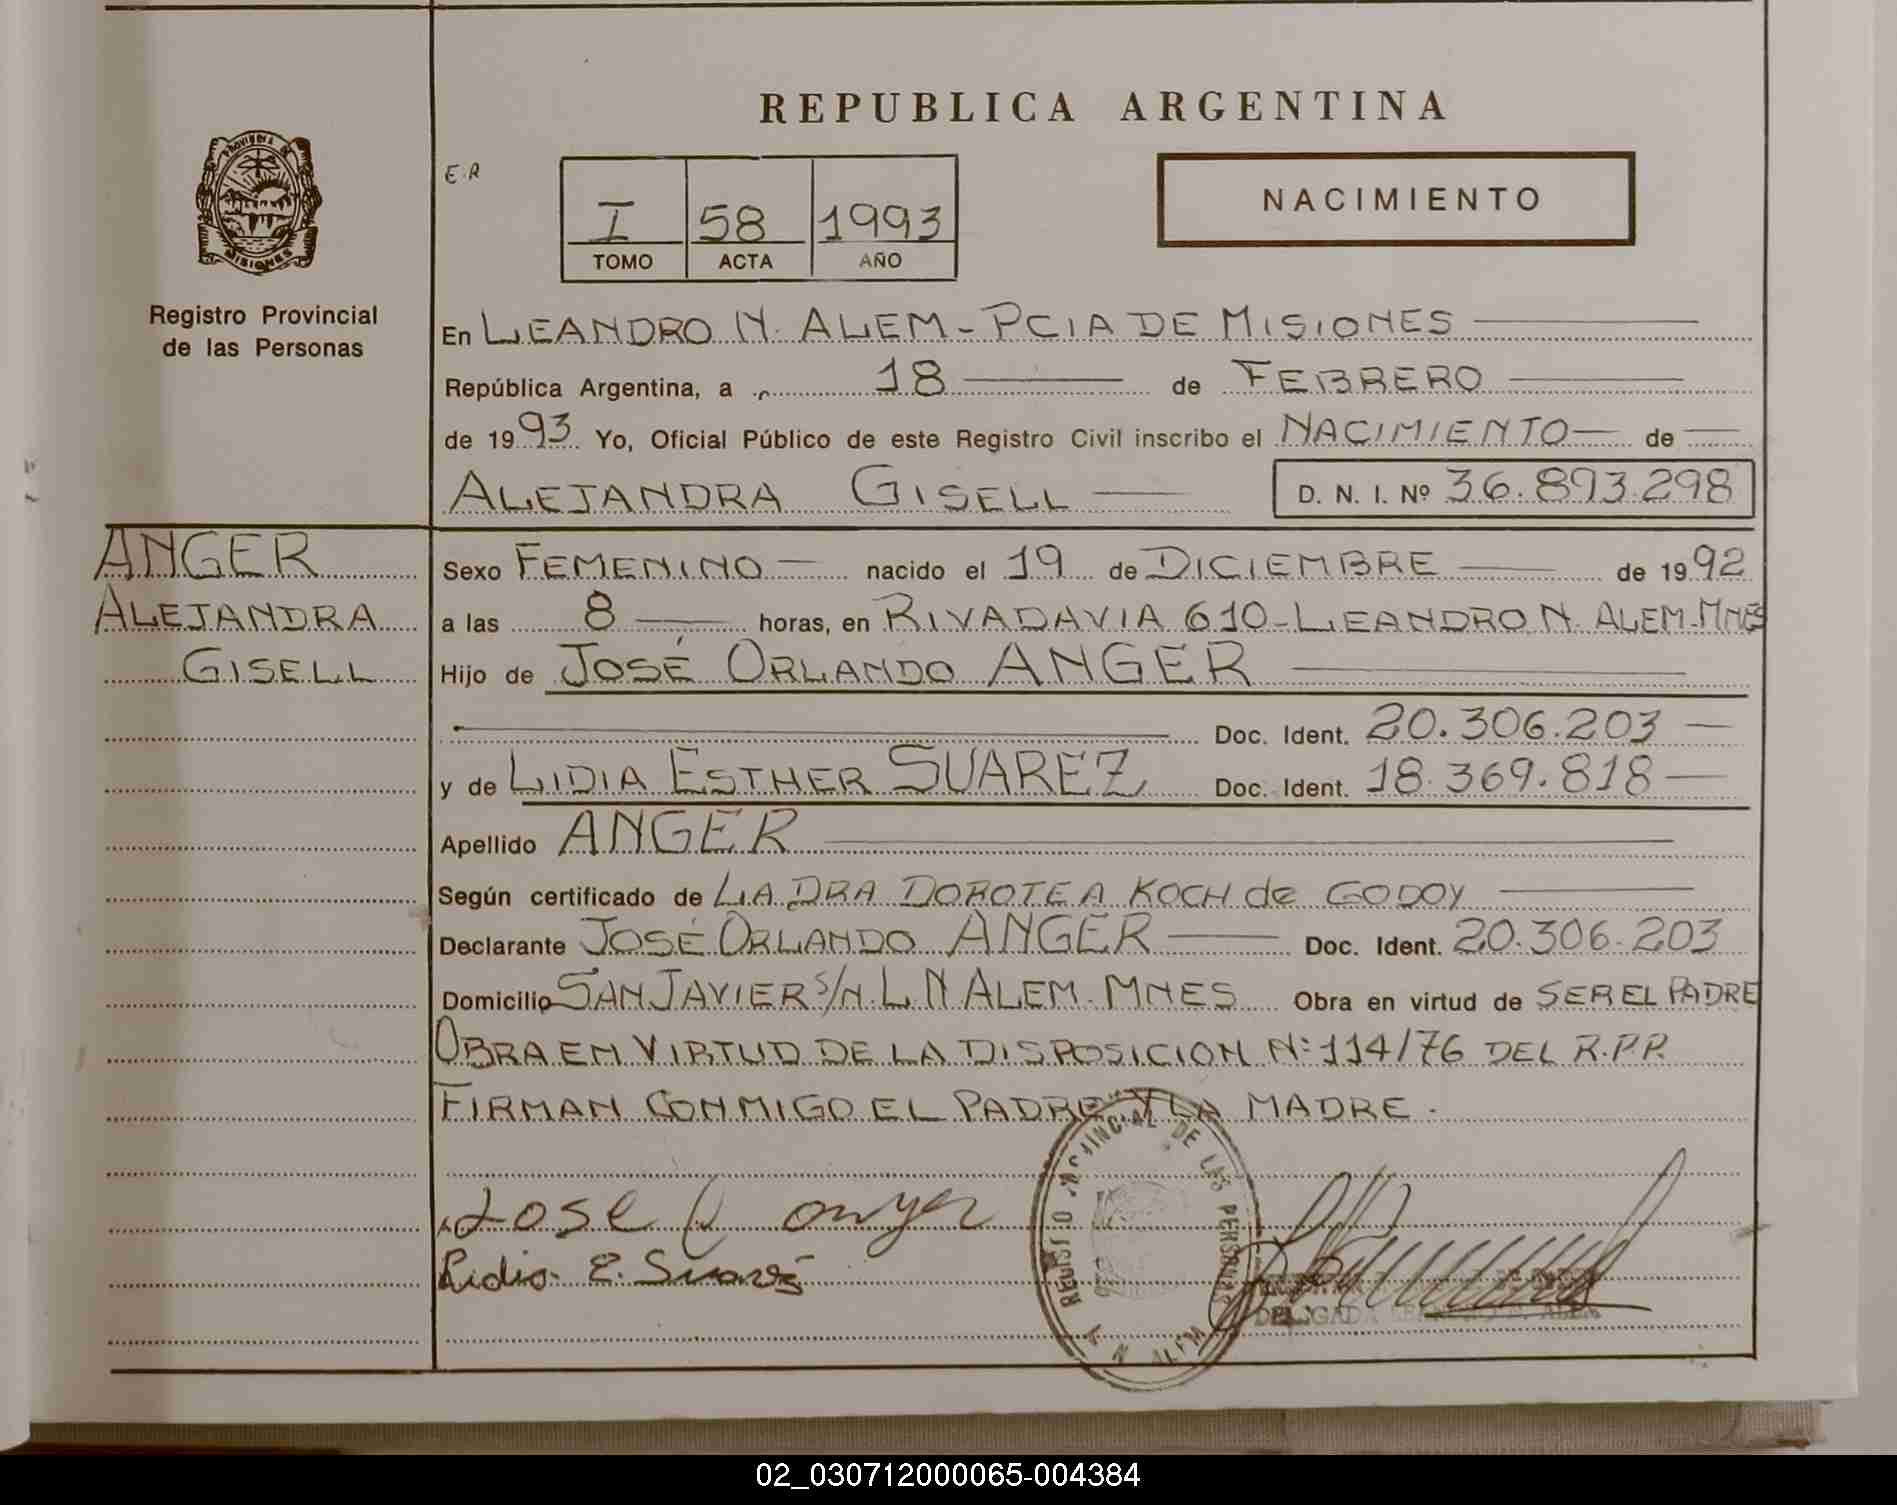 REPUBLICA ARGENTINA
PROVINCIA DE
MISIONES
Registro Provincial
de las Personas
E.R
I 58 1993
TOMO ACTA AÑO
NACIMIENTO
En LEANDRO N. ALEM - PCIA DE MISIONES
República Argentina, a 18 de FEBRERO
de 1993. Yo, Oficial Público de este Registro Civil inscribo el NACIMIENTO de
ALEJANDRA GISELL D. N. I. Nº 36.893.298
ANGER
ALEJANDRA
GISELL
Sexo FEMENINO nacido el 19 de DICIEMBRE de 1992
a las 8 horas, en RIVADAVIA 610 - LEANDRO N. ALEM. MNES
Hijo de JOSÉ ORLANDO ANGER
Doc. Ident. 20.306.203
y de LIDIA ESTHER SUAREZ Doc. Ident. 18.369.818
Apellido ANGER
Según certificado de LA DRA DOROTEA KOCH de GODOY
Declarante JOSÉ ORLANDO ANGER Doc. Ident. 20.306.203
Domicilio SAN JAVIER S/N. L N ALEM. MNES Obra en virtud de SER EL PADRE
OBRA EN VIRTUD DE LA DISPOSICION N: 114/76 DEL R.P.P.
FIRMAN CONMIGO EL PADRE Y LA MADRE.
Jose O anger
Lidia E. Suarez
REGISTRO PROVINCIAL DE LAS PERSONAS
L. N. ALEM
DELEGADA LEANDRO N. ALEM
02_030712000065-004384